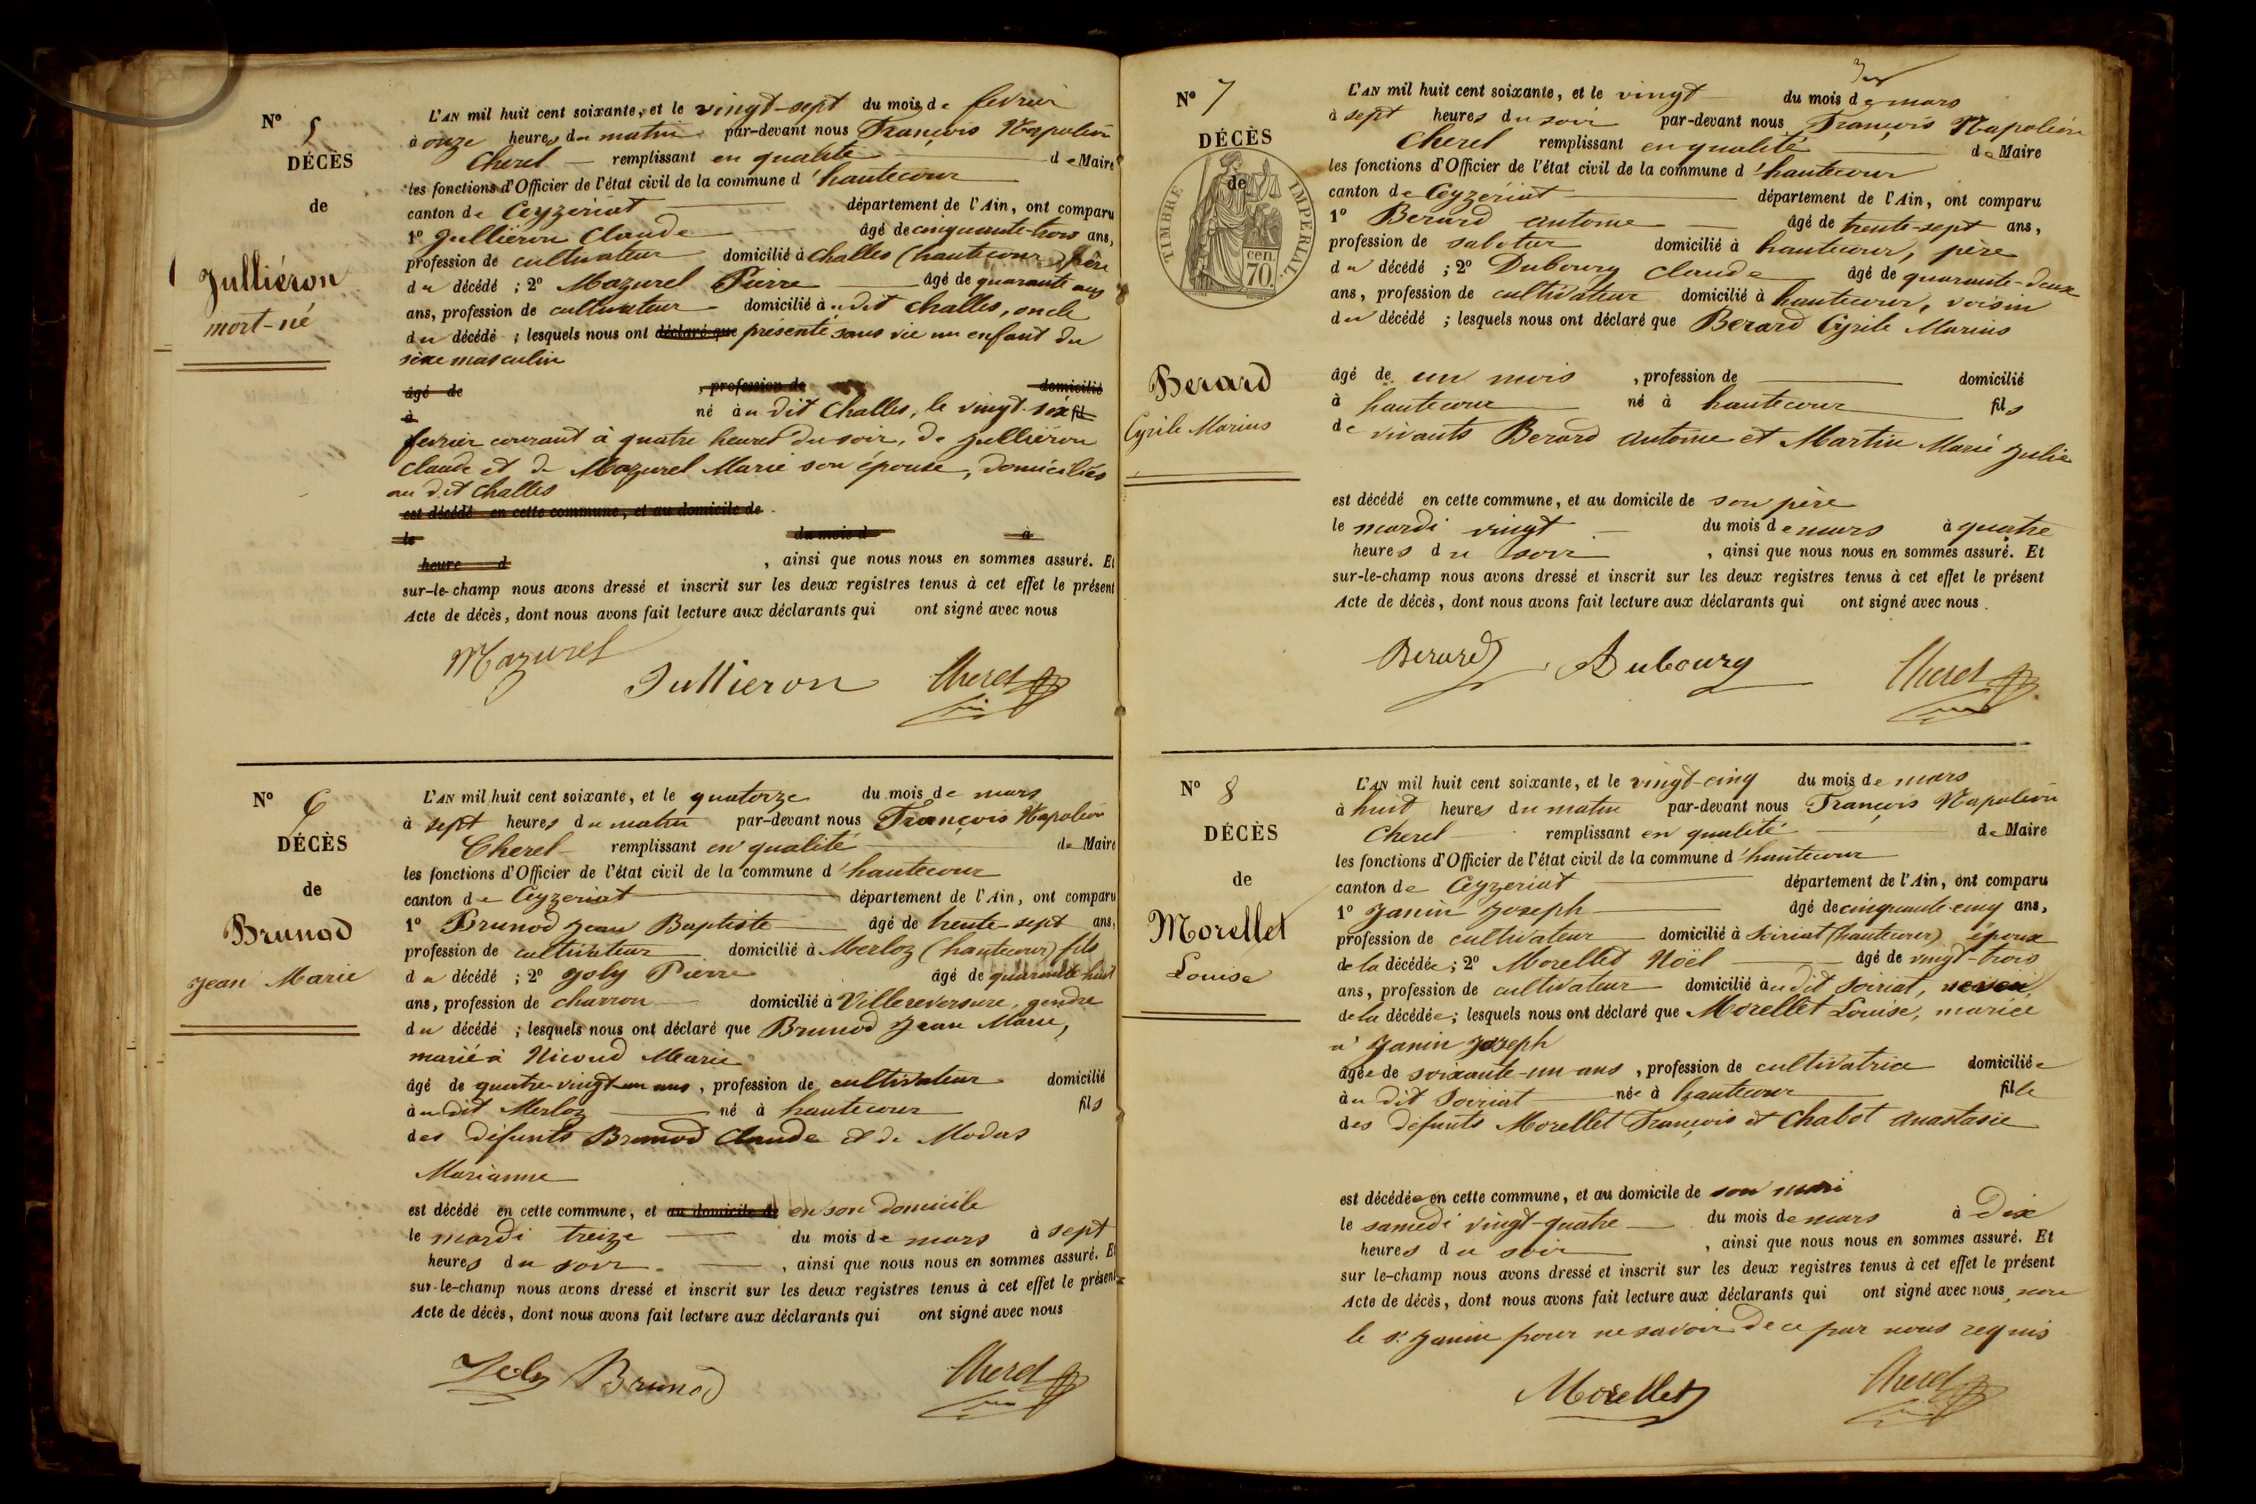 N° 5
DÉCÈS
de
Julliéron
mort-né
L'AN mil huit cent soixante, et le vingt-sept du mois de fevrier
à onze heures du matin par-devant nous François Napoléon
Cherel remplissant en qualité de Maire
les fonctions d'Officier de l'état civil de la commune d'hautecour
canton de Ceyzeriat département de l'Ain, ont comparu
1° Julliéron Claude âgé de cinquante-trois ans,
profession de cultivateur domicilié à Challes (hautecour) père
du décédé ; 2° Mazurel Pierre âgé de quarante ans
ans, profession de cultivateur domicilié à udit Challes, oncle
du décédé ; lesquels nous ont déclaré que présenté sans vie un enfant du
sexe masculin
âgé de , profession de domicilié
à né au dit Challes, le vingt-six fil
fevrier courant à quatre heures du soir, de Julliéron
Claude et de Mazurel Marie son épouse, domiciliés
au dit Challes
est décédé en cette commune, et au domicile de
le du mois d à
heure d , ainsi que nous nous en sommes assuré. Et
sur-le-champ nous avons dressé et inscrit sur les deux registres tenus à cet effet le présent
Acte de décès, dont nous avons fait lecture aux déclarants qui ont signé avec nous
Mazurel Jullieron Cherel
N° 6
DÉCÈS
de
Brunod
Jean Marie
L'AN mil huit cent soixante, et le quatorze du mois de mars
à sept heures du matin par-devant nous François Napoléon
Cherel remplissant en qualité de Maire
les fonctions d'Officier de l'état civil de la commune d'hautecour
canton de Ceyzeriat département de l'Ain, ont comparu
1° Brunod Jean Baptiste âgé de trente-sept ans,
profession de cultivateur domicilié à Merloz (hautecour) fils
du décédé ; 2° Joly Pierre âgé de quarante-huit
ans, profession de charron domicilié à Villereversure, gendre
du décédé ; lesquels nous ont déclaré que Brunod Jean Marie,
marié à Nicoud Marie
âgé de quatre-vingt-un ans, profession de cultivateur domicilié
à udit Merloz né à hautecour fils
des défunts Brunod Claude et de Modas
Marianne
est décédé en cette commune, et au domicile de en son domicile
le mardi treize du mois de mars à sept
heures du soir , ainsi que nous nous en sommes assuré. Et
sur-le-champ nous avons dressé et inscrit sur les deux registres tenus à cet effet le présent
Acte de décès, dont nous avons fait lecture aux déclarants qui ont signé avec nous
Joly Brunod Cherel
N° 7
DÉCÈS
de
TIMBRE IMPÉRIAL
70 cen.
Berard
Cyrile Marius
L'AN mil huit cent soixante, et le vingt du mois de mars
à sept heures du soir par-devant nous François Napoléon
Cherel remplissant en qualité de Maire
les fonctions d'Officier de l'état civil de la commune d'hautecour
canton de Ceyzériat département de l'Ain, ont comparu
1° Berard antome âgé de trente-sept ans,
profession de sabotier domicilié à hautecour, père
du décédé ; 2° Dubourg Claude âgé de quarante-deux
ans, profession de cultivateur domicilié à hautecour, voisin
du décédé ; lesquels nous ont déclaré que Berard Cyrile Marius
âgé de un mois , profession de domicilié
à hautecour né à hautecour fils
de vivants Berard antome et Martin Marie Julie
est décédé en cette commune, et au domicile de son père
le mardi vingt du mois de mars à quatre
heures du soir , ainsi que nous nous en sommes assuré. Et
sur-le-champ nous avons dressé et inscrit sur les deux registres tenus à cet effet le présent
Acte de décès, dont nous avons fait lecture aux déclarants qui ont signé avec nous.
Berard Dubourg Cherel
N° 8
DÉCÈS
de
Morellet
Louise
L'AN mil huit cent soixante, et le vingt-cinq du mois de mars
à huit heures du matin par-devant nous François Napoléon
Cherel remplissant en qualité de Maire
les fonctions d'Officier de l'état civil de la commune d'hautecour
canton de Ceyzeriat département de l'Ain, ont comparu
1° Janin Joseph âgé de cinquante-cinq ans,
profession de cultivateur domicilié à Soiriat (hautecour) époux
de la décédée ; 2° Morellet Noël âgé de vingt-trois
ans, profession de cultivateur domicilié à udit Soiriat, neveu
de la décédée ; lesquels nous ont déclaré que Morellet Louise, mariée
à Janin Joseph
âgée de soixante-un ans, profession de cultivatrice domiciliée
à u dit Soiriat née à hautecour fille
des défunts Morellet François et Chabot anastasie
est décédée en cette commune, et au domicile de son mari
le samedi vingt-quatre du mois de mars à dix
heures du soir , ainsi que nous nous en sommes assuré. Et
sur le-champ nous avons dressé et inscrit sur les deux registres tenus à cet effet le présent
Acte de décès, dont nous avons fait lecture aux déclarants qui ont signé avec nous, non
le sr Janin pour ne savoir de ce par nous requis
Morellet Cherel